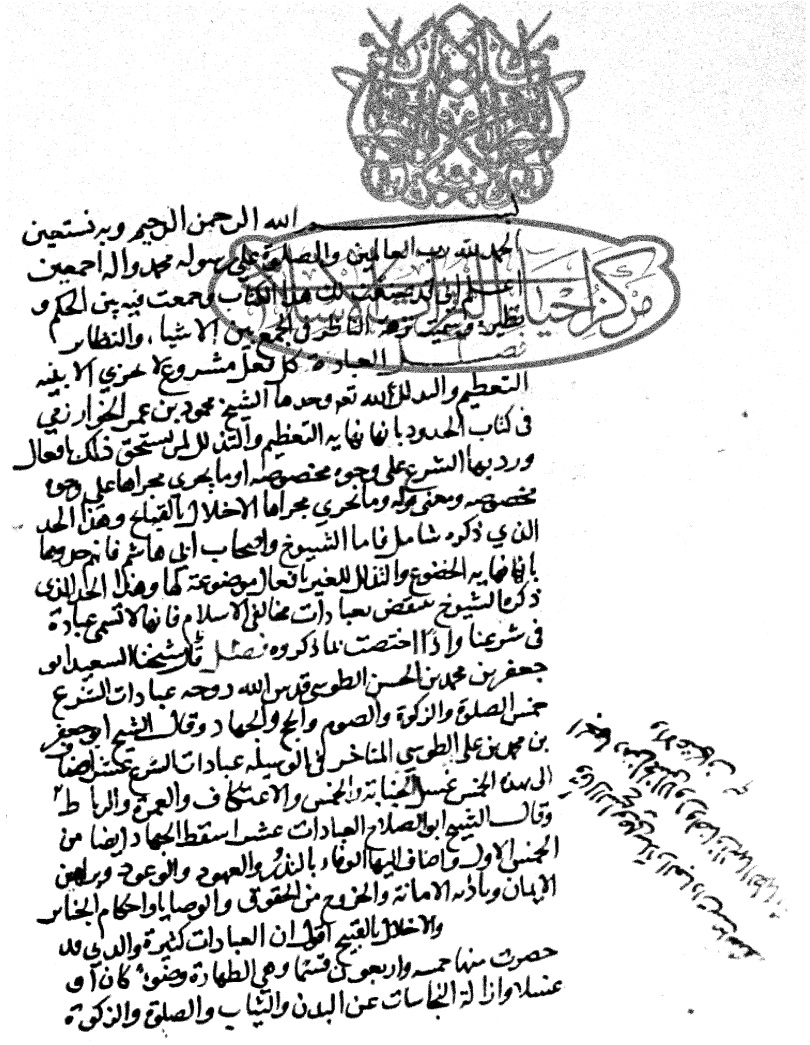 بسم الله الرحمن الرحيم وبه نستعين
الحمد لله رب العالمين والصلوة على رسوله محمد واله اجمعين
اعلم انى قد صنفت لك هذا الكتاب وجمعت فيه بين الحكم و
نظيره وسميته نزهة الناظر فى الجمع بين الاشباه والنظاير
فصل العبادة كل فعل مشروع لا يجزي الا بنية
التعظيم والتذلل لله تعه وحدها الشيخ محمود بن عمر الخوارزمي
فى كتاب الحدود بانها نهاية التعظيم والتذلل لمن يستحق ذلك بافعال
ورد بها الشرع على وجوه مخصوصه او ما يجري مجراها على وجوه
مخصوصه ومعنى قوله وما يجري مجراها الاخلال بالقبايح وهذا الحد
الذي ذكره شامل فاما الشيوخ واصحاب ابى هاشم فانهم حدوها
بانها نهاية الخضوع والتذلل للغير بافعال موضوعة لها وهذا الحد الذى
ذكره الشيوخ ينتقض بعبادات مخالفى الاسلام فانها لا تسمى عبادة
فى شرعنا واذا اختصت بما ذكروه فصل قال شيخنا السعيد ابو
جعفر بن محمد بن الحسن الطوسى قدس الله روحه عبادات الشرع
خمس الصلوة والزكوة والصوم والحج والجهاد وقال الشيخ ابو جعفر
بن محمد بن على الطوسي المتاخر فى الوسيله عبادات الشرع عشر اضاف
الى هذه الخمس غسل الجنابة والخمس والاعتكاف والعمرة والرباط
وقال الشيخ ابو الصلاح العبادات عشر اسقط الجهاد ايضا من
الخمس الاول واضاف اليها الوفاء بالنذر والعهود والوعود وبراهين
الايمان وتادية الامانة والخروج من الحقوق والوصايا واحكام الجنايز
والاخلال بالقبيح اقول ان العبادات كثيرة والذي قد
حصرت منها خمسه واربعون قسما وهي الطهارة وضوء كان او
غسلا وازالة النجاسات عن البدن والثياب والصلوة والزكوة
مركز احياء التراث الاسلامي